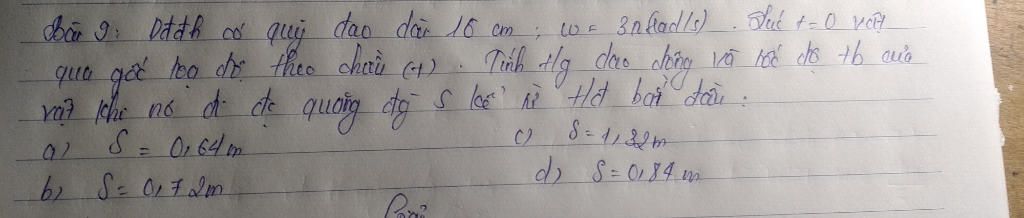 Bài 9: Dđđh có quỹ đạo dài 16 cm ; ω = 3π (rad/s) . Lúc t = 0 vật
qua gốc toạ độ theo chiều (+) . Tính t/g dao động và tốc độ tb của
vật khi nó đi đc quãng đg S kể từ tđ bắt đầu :
a) S = 0,64 m
c) S = 1,32 m
b) S = 0,72 m
d) S = 0,84 m